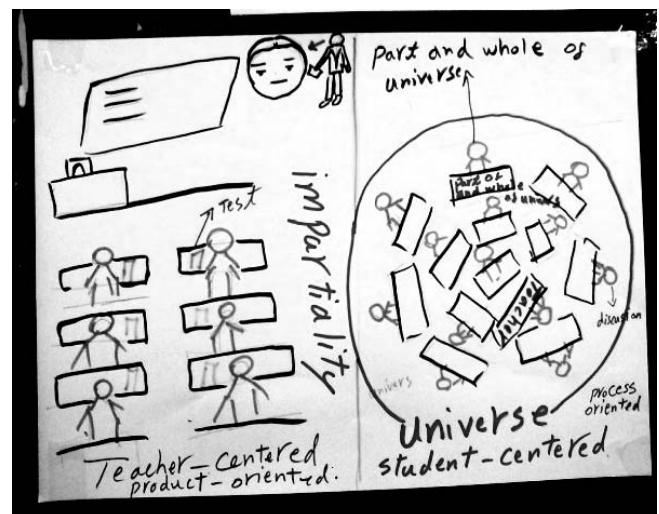 Test
impartiality
Teacher-centered
product-oriented.
part and whole of
universe
part of
and whole
of univers
Teacher
discusion
univers
process
oriented
universe
student-centered